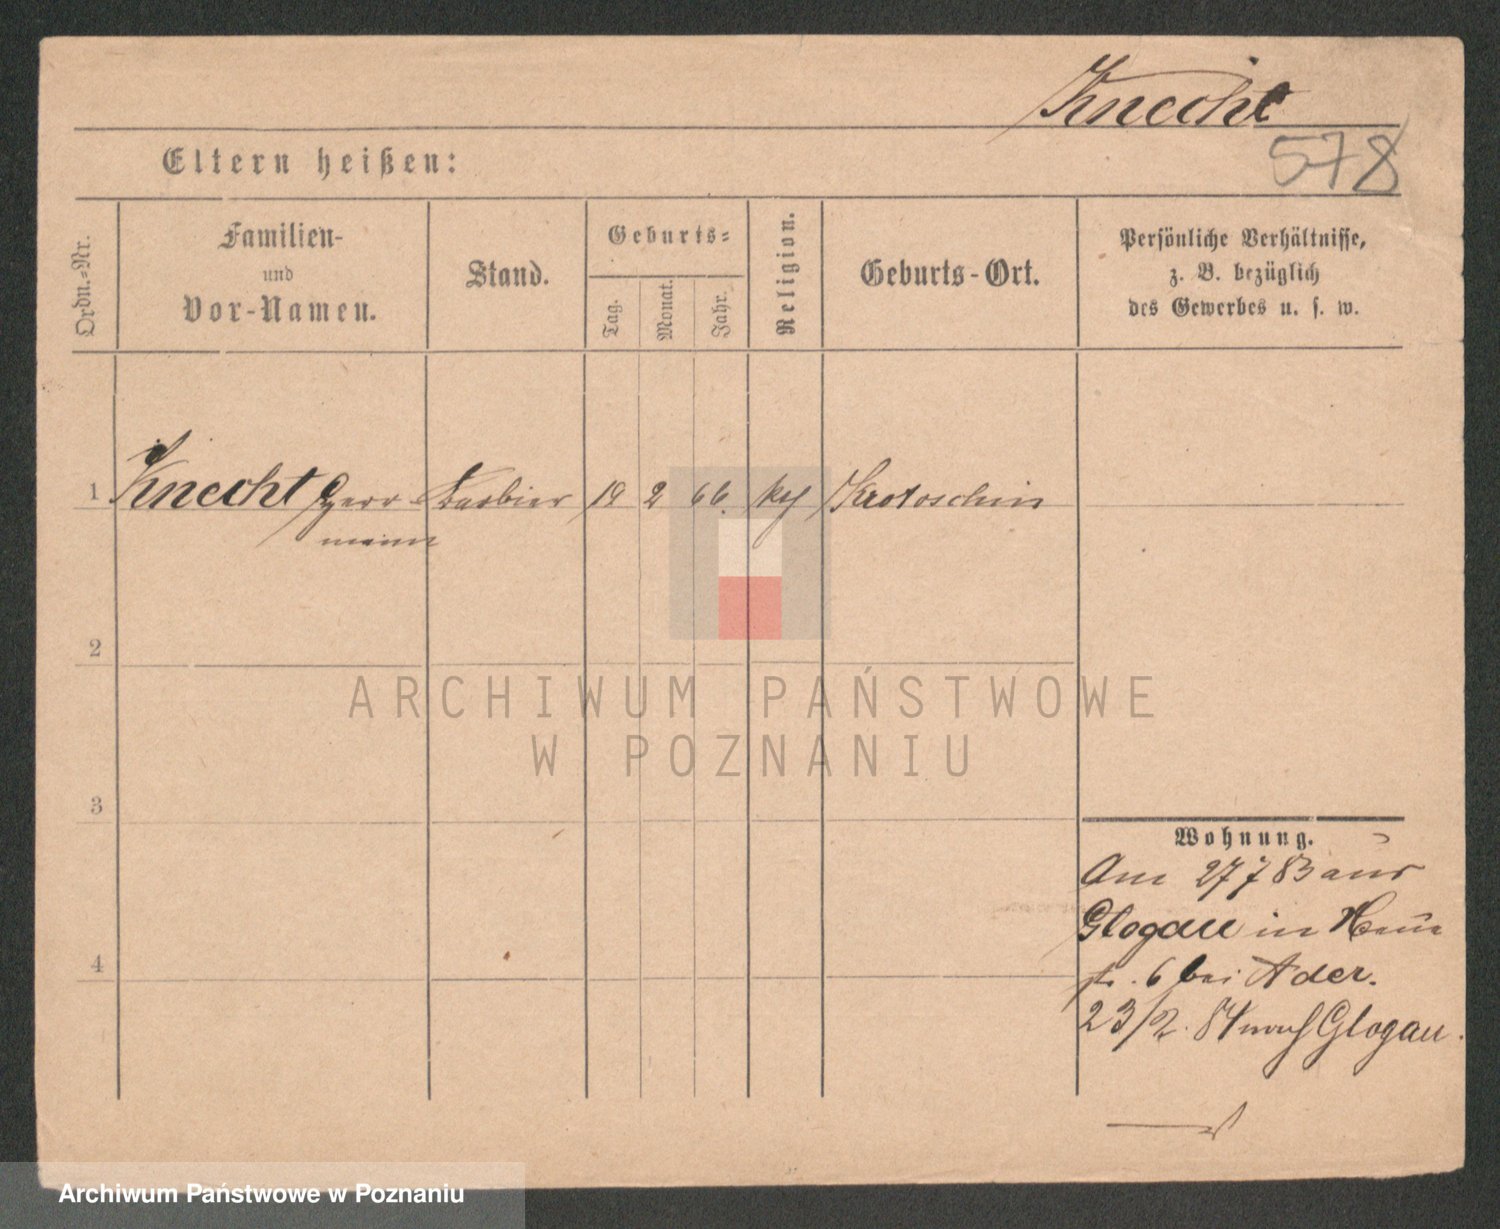 Knecht
578
Eltern heißen:
Ordn.-Nr.
Familien-
und
Vor-Namen.
Stand.
Geburts-
Tag.
Monat.
Jahr.
Religion.
Geburts-Ort.
Persönliche Verhältnisse,
z. B. bezüglich
des Gewerbes u. s. w.
1 Knecht Herr- Barbier 19 2 66. Krotoschin
mann
2
ARCHIWUM PAŃSTWOWE
W POZNANIU
3
Wohnung.
Am 27 7 83 aus
Glogau in
4
str. 6 bei Ader.
23/2. 84 nach Glogau.
Archiwum Państwowe w Poznaniu